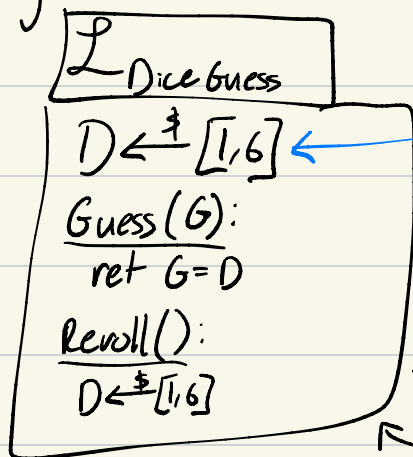 ℒ Dice Guess
D ←$ [1,6]
Guess(G):
ret G=D
Reroll():
D ←$ [1,6]